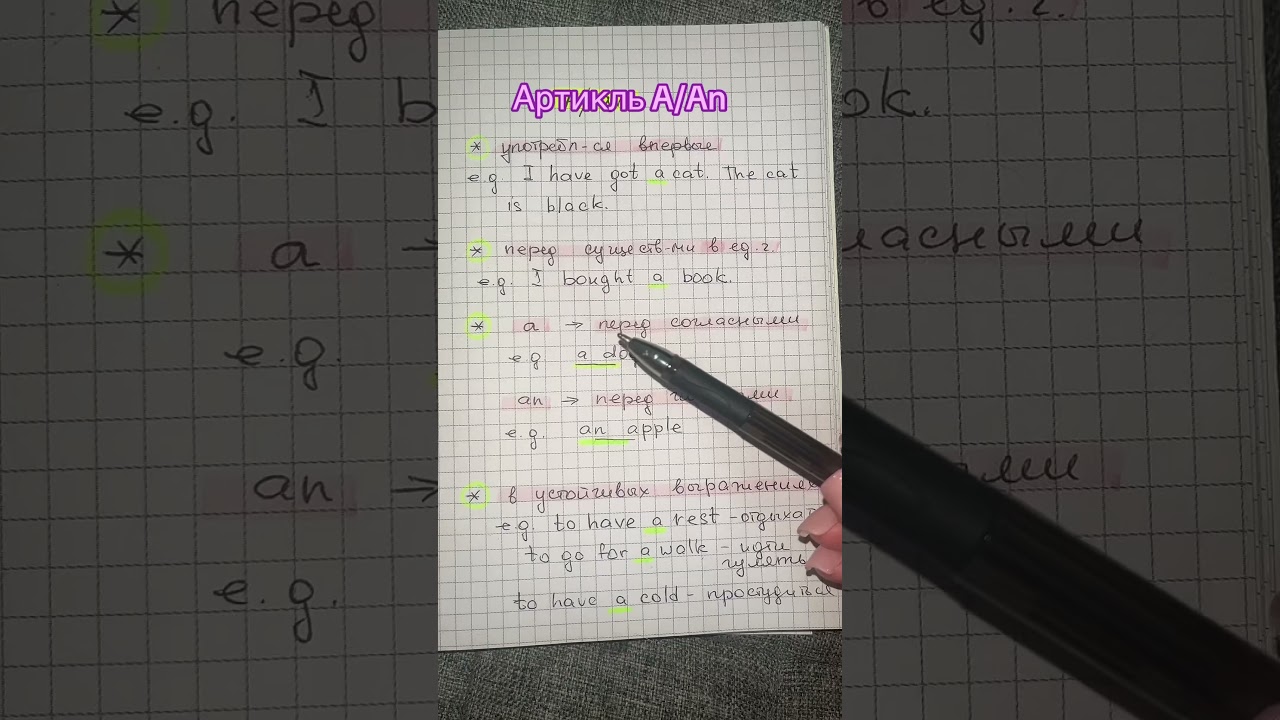 Артикль A/An
* употребл-ся впервые
e.g I have got a cat. The cat
is black.
* перед существ-ми в ед.ч.
e.g. I bought a book.
* a → перед согласными
e.g a
an → перед
e.g. an apple
* в устойчивых выражениях
e.g. to have a rest - отдыхать
to go for a walk - идти
гулять
to have a cold - простудиться